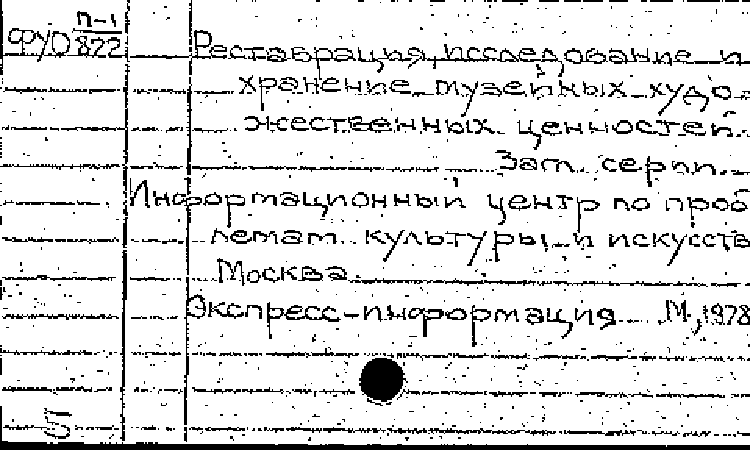 П-1
ФУО 822
Реставрация, исследование и
хранение музейных худо
жественных ценностей.
Заг. серии.
Информационный центр по проб
лемам культуры и искусств
Москва.
Экспресс-информация. М., 1978
5